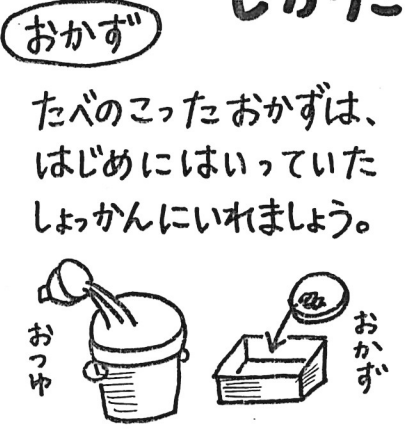 おかず
たべのこったおかずは、
はじめにはいっていた
しょっかんにいれましょう。
おつゆ
おかず